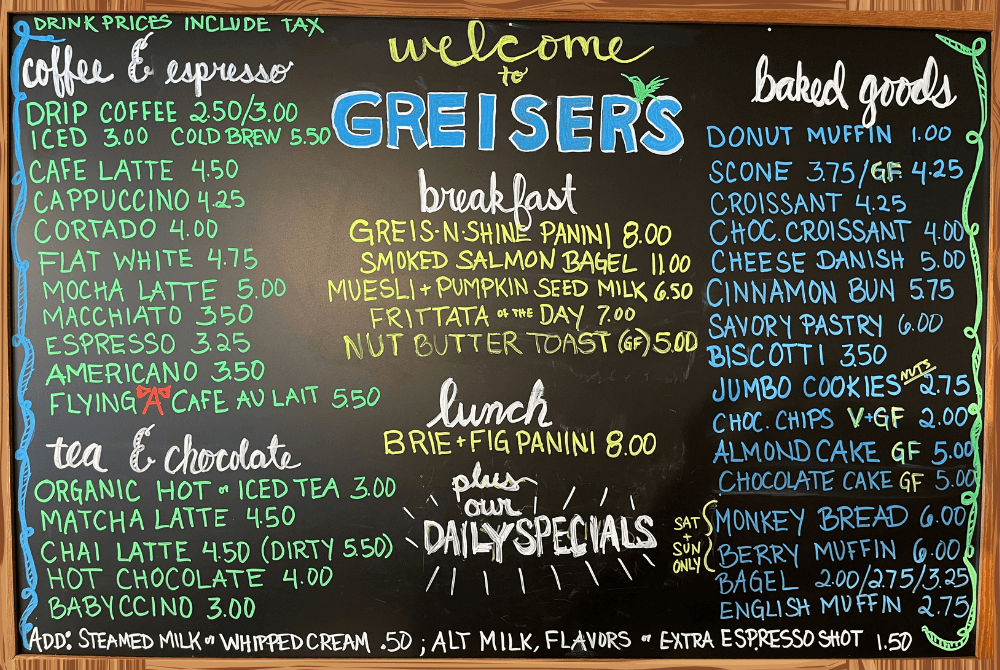 DRINK PRICES INCLUDE TAX
coffee & espresso
DRIP COFFEE 2.50/3.00
ICED 3.00 COLD BREW 5.50
CAFE LATTE 4.50
CAPPUCCINO 4.25
CORTADO 4.00
FLAT WHITE 4.75
MOCHA LATTE 5.00
MACCHIATO 3.50
ESPRESSO 3.25
AMERICANO 3.50
FLYING "A" CAFE AU LAIT 5.50
tea & chocolate
ORGANIC HOT or ICED TEA 3.00
MATCHA LATTE 4.50
CHAI LATTE 4.50 (DIRTY 5.50)
HOT CHOCOLATE 4.00
BABYCCINO 3.00
welcome
to
GREISER'S
breakfast
GREIS-N-SHINE PANINI 8.00
SMOKED SALMON BAGEL 11.00
MUESLI + PUMPKIN SEED MILK 6.50
FRITTATA OF THE DAY 7.00
NUT BUTTER TOAST (GF) 5.00
lunch
BRIE + FIG PANINI 8.00
plus
our
DAILY SPECIALS
baked goods
DONUT MUFFIN 1.00
SCONE 3.75/GF 4.25
CROISSANT 4.25
CHOC. CROISSANT 4.00
CHEESE DANISH 5.00
CINNAMON BUN 5.75
SAVORY PASTRY 6.00
BISCOTTI 3.50
JUMBO COOKIES NUTS 2.75
CHOC. CHIPS V+GF 2.00
ALMOND CAKE GF 5.00
CHOCOLATE CAKE GF 5.00
SAT + SUN ONLY
MONKEY BREAD 6.00
BERRY MUFFIN 6.00
BAGEL 2.00/2.75/3.25
ENGLISH MUFFIN 2.75
ADD: STEAMED MILK or WHIPPED CREAM .50 ; ALT MILK, FLAVORS or EXTRA ESPRESSO SHOT 1.50